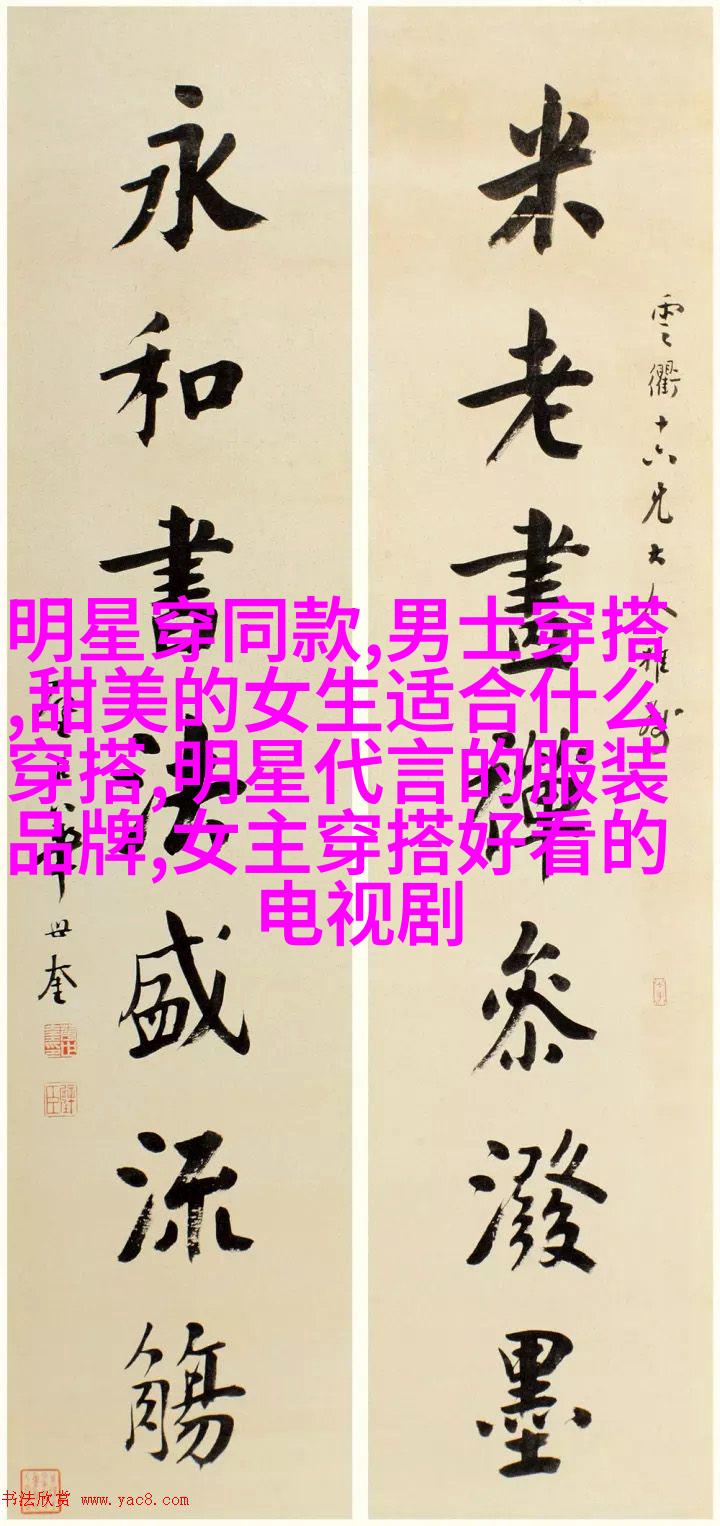 雲衢十六兄大人雅
米老畫禪叅潑墨
永和書法盛流觴
華世奎
明星穿同款,男士穿搭
,甜美的女生适合什么
穿搭,明星代言的服装
品牌,女主穿搭好看的
电视剧
书法欣赏 www.yac8.com